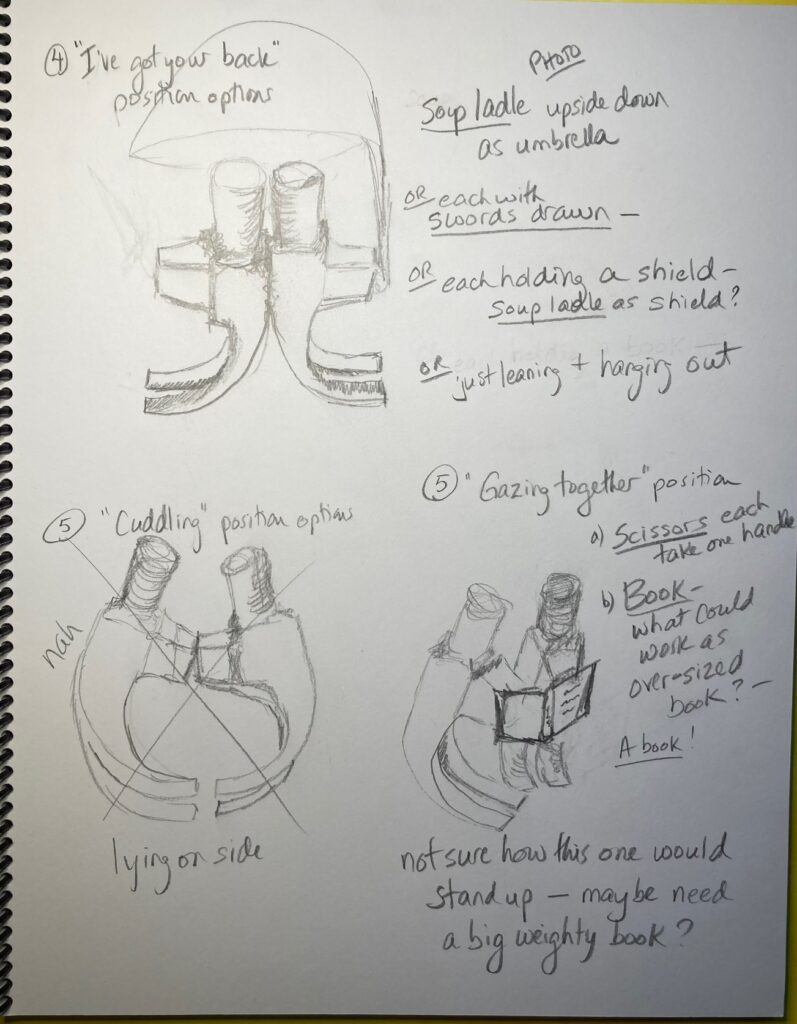 ④ "I've got your back"
position options
PHOTO
Soup ladle upside down
as umbrella
OR each with
swords drawn —
OR each holding a shield —
soup ladle as shield?
OR just leaning + hanging out
⑤ "Cuddling" position options
nah
lying on side
⑤ "Gazing together" position
a) Scissors each
take one handle
b) Book —
what could
work as
over-sized
book? —
A book!
not sure how this one would
stand up — maybe need
a big weighty book?